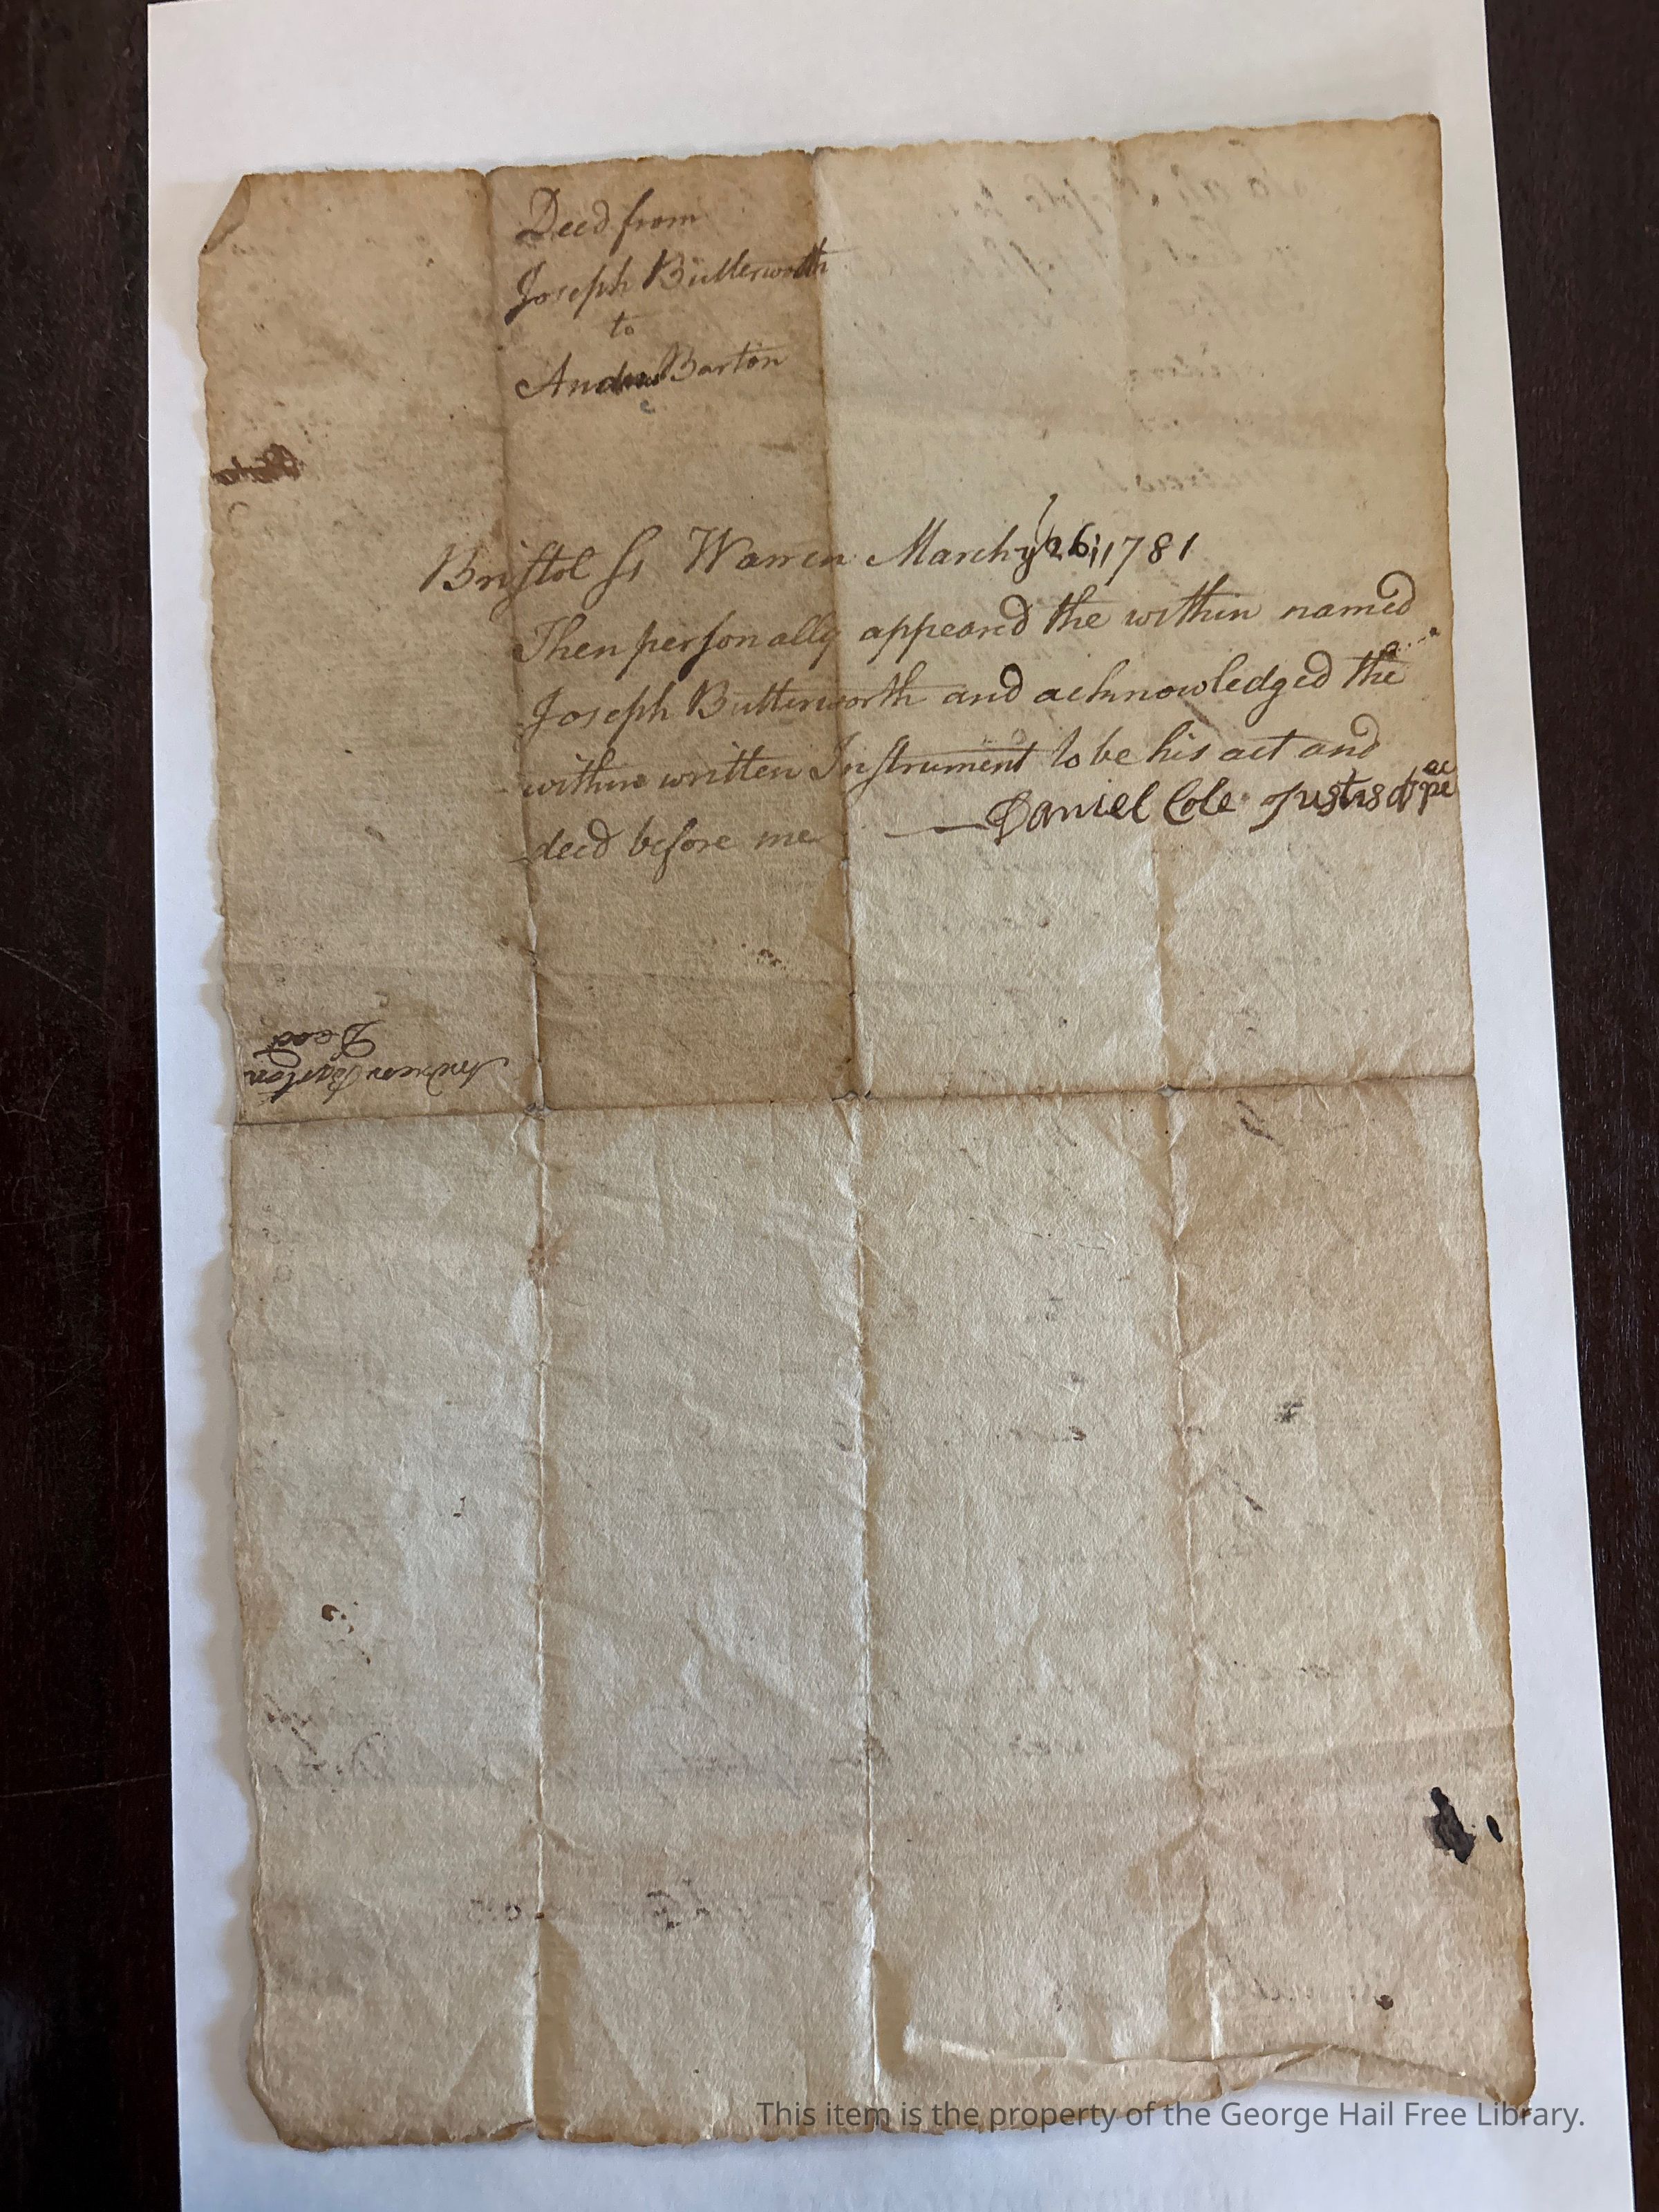 Deed from
Joseph Butterworth
to
Andrew Barton
Bristol ss Warren March ye 26, 1781
Then personally appeared the within named
Joseph Butterworth and acknowledged the
within written Instrument to be his act and
deed before me — Daniel Cole Justis of peac
Andrew Barton
Deed
This item is the property of the George Hail Free Library.